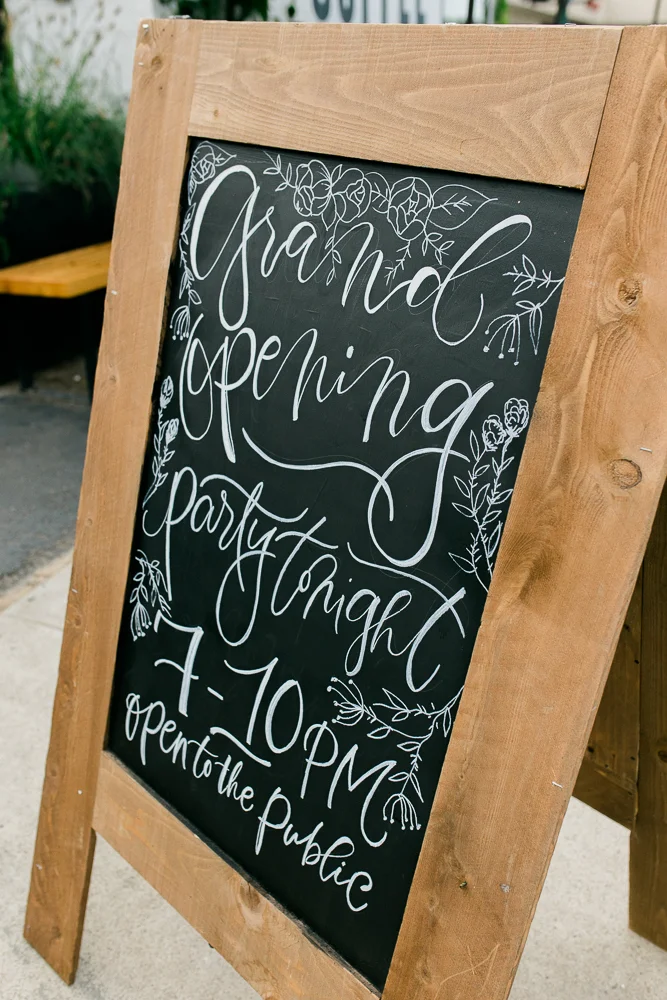 COFFEE
Grand
opening
party tonight
7-10 PM
open to the public